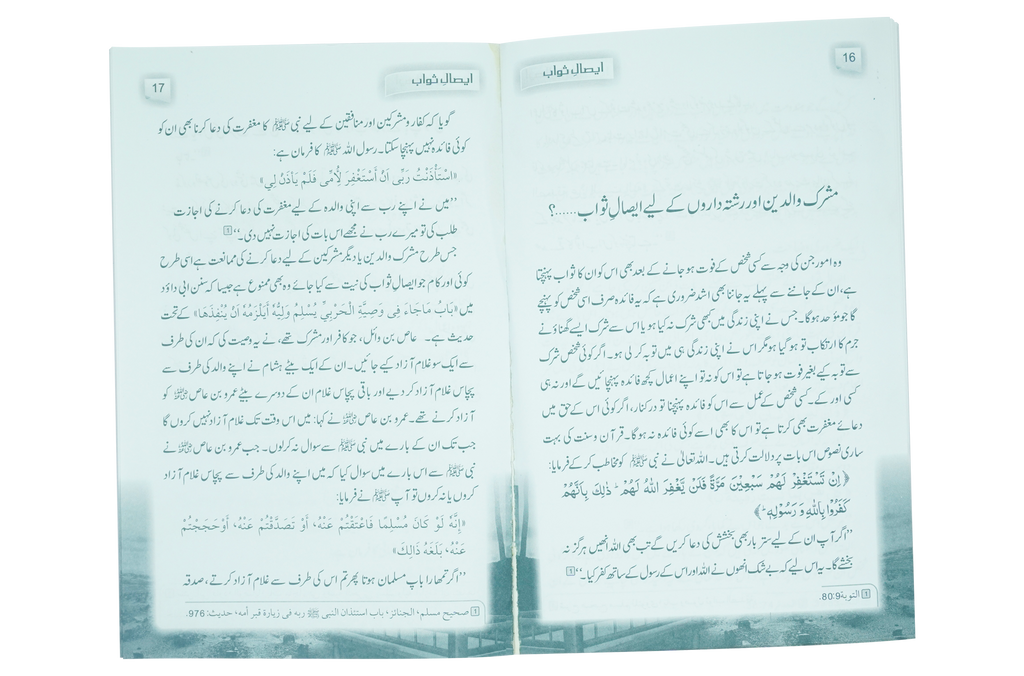 16
ایصالِ ثواب
مشرک والدین اور رشتہ داروں کے لیے ایصالِ ثواب......؟
وہ امور جن کی وجہ سے کسی شخص کے فوت ہو جانے کے بعد بھی اس کو ان کا ثواب پہنچتا
ہے، ان کے جاننے سے پہلے یہ جاننا بھی اشد ضروری ہے کہ یہ فائدہ صرف اسی شخص کو پہنچے
گا جو موَحد ہوگا۔ جس نے اپنی زندگی میں کبھی شرک نہ کیا ہو یا اس سے شرک ایسے گھناؤنے
جرم کا ارتکاب تو ہو گیا ہو مگر اس نے اپنی زندگی ہی میں توبہ کر لی ہو۔ اگر کوئی شخص شرک
سے توبہ کیے بغیر فوت ہو جاتا ہے تو اس کو نہ تو اپنے اعمال کچھ فائدہ پہنچائیں گے اور نہ ہی
کسی اور کے۔ کسی شخص کے عمل سے اس کو فائدہ پہنچنا تو درکنار، اگر کوئی اس کے حق میں
دعائے مغفرت بھی کرتا ہے تو اس کا بھی اسے کوئی فائدہ نہ ہوگا۔ قرآن و سنت کی بہت
ساری نصوص اس بات پر دلالت کرتی ہیں۔ اللہ تعالیٰ نے نبی ﷺ کو مخاطب کر کے فرمایا:
﴿اِنْ تَسْتَغْفِرْ لَهُمْ سَبْعِيْنَ مَرَّةً فَلَنْ يَّغْفِرَ اللّٰهُ لَهُمْ ؕ ذٰلِكَ بِاَنَّهُمْ
كَفَرُوْا بِاللّٰهِ وَ رَسُوْلِهٖ ؕ﴾
”اگر آپ ان کے لیے ستر بار بھی بخشش کی دعا کریں گے تب بھی اللہ انھیں ہرگز نہ
بخشے گا۔ یہ اس لیے کہ بے شک انھوں نے اللہ اور اس کے رسول کے ساتھ کفر کیا۔“ 1
1 التوبة 80:9.
17
ایصالِ ثواب
گویا کہ کفار و مشرکین اور منافقین کے لیے نبی ﷺ کا مغفرت کی دعا کرنا بھی ان کو
کوئی فائدہ نہیں پہنچا سکتا۔ رسول اللہ ﷺ کا فرمان ہے:
«اسْتَأْذَنْتُ رَبِّي أَنْ أَسْتَغْفِرَ لِأُمِّي فَلَمْ يَأْذَنْ لِي»
”میں نے اپنے رب سے اپنی والدہ کے لیے مغفرت کی دعا کرنے کی اجازت
طلب کی تو میرے رب نے مجھے اس بات کی اجازت نہیں دی۔“ 1
جس طرح مشرک والدین یا دیگر مشرکین کے لیے دعا کرنے کی ممانعت ہے اسی طرح
کوئی اور کام جو ایصالِ ثواب کی نیت سے کیا جائے وہ بھی ممنوع ہے جیسا کہ سنن ابی داؤد
میں «بَابُ مَاجَاءَ فِي وَصِيَّةِ الْحَرْبِيِّ يُسْلِمُ وَلِيُّهُ أَيَلْزَمُهُ أَنْ يُنْفِذَهَا» کے تحت
حدیث ہے۔ عاص بن وائل، جو کافر اور مشرک تھے، نے یہ وصیت کی کہ ان کی طرف
سے ایک سو غلام آزاد کیے جائیں۔ ان کے ایک بیٹے ہشام نے اپنے والد کی طرف سے
پچاس غلام آزاد کر دیے اور باقی پچاس غلام ان کے دوسرے بیٹے عمرو بن عاص رضی اللہ عنہ کو
آزاد کرنے تھے۔ عمرو بن عاص رضی اللہ عنہ نے کہا: میں اس وقت تک غلام آزاد نہیں کروں گا
جب تک ان کے بارے میں نبی ﷺ سے سوال نہ کر لوں۔ جب عمرو بن عاص رضی اللہ عنہ نے
نبی ﷺ سے اس بارے میں سوال کیا کہ میں اپنے والد کی طرف سے پچاس غلام آزاد
کروں یا نہ کروں تو آپ ﷺ نے فرمایا:
«إِنَّهُ لَوْ كَانَ مُسْلِمًا فَأَعْتَقْتُمْ عَنْهُ، أَوْ تَصَدَّقْتُمْ عَنْهُ، أَوْحَجَجْتُمْ
عَنْهُ، بَلَغَهُ ذَالِكَ»
”اگر تمھارا باپ مسلمان ہوتا پھر تم اس کی طرف سے غلام آزاد کرتے، صدقہ
1 صحیح مسلم، الجنائز، باب استئذان النبی ﷺ ربه فی زیارة قبر أمه، حدیث: 976.